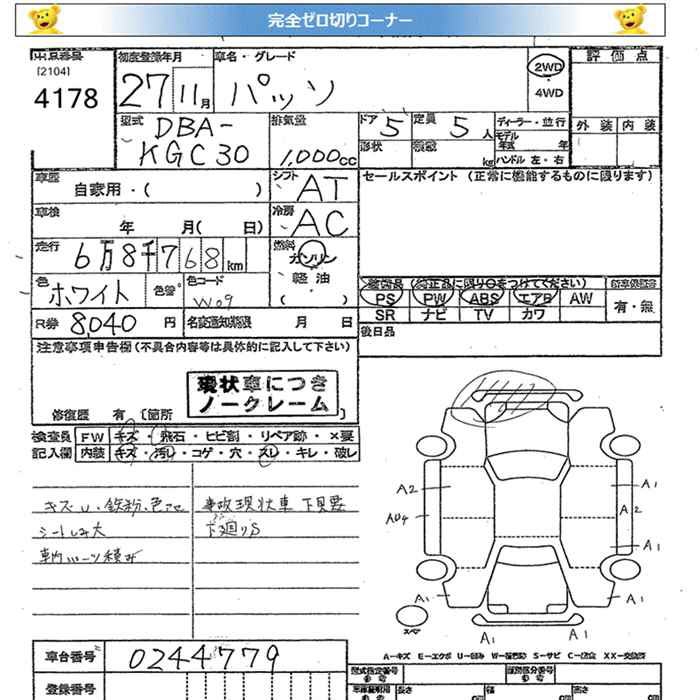 完全ゼロ切りコーナー
出品番号
[2104]
4178
初度登録年月
27 11月
車名・グレード
パッソ
2WD
・
4WD
評価点
外装 内装
型式
DBA-
KGC30
排気量
1,000cc
ドア 5
形状
定員 5人
積載 kg
ディーラー・並行
モデル年式 年
ハンドル 左・右
車歴
自家用・( )
シフト AT
セールスポイント (正常に機能するものに限ります)
車検
年 月( 日)
冷房 AC
走行
6万8千768km
燃料
ガソリン
軽油
( )
色
ホワイト
色替
色コード
W09
装備品 (純正品に限り○をつけてください)
PS PW ABS エアB AW
SR ナビ TV カワ
新車保証書
有・無
R券 8040円
名変通知期限 月 日
後日品
注意事項申告欄(不具合内容等は具体的に記入して下さい)
現状車につき
ノークレーム
修復歴 有〔箇所
検査員
記入欄
FW キズ・飛石・ヒビ割・リペア跡・×要
内装 キズ・汚れ・コゲ・穴・スレ・キレ・破レ
キズU・鉄粉・色アセ
シートしみ大
車内パーツ積み
事故現状車 下見要
下廻りS
A2
AU4
A1
A2
A1
A1
A1
A1
A1
スペア
A-キズ E-エクボ U-凹み W-補修跡 S-サビ C-腐食 XX-交換済
車台番号
0244779
登録番号
型式指定番号
類別区分番号
長さ
幅
高さ